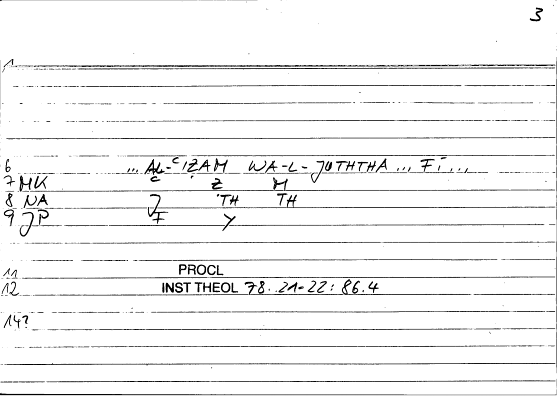 3
1
6 ... AL-ʿIẒAM WA-L-JUTHTHA ... FĪ ...
7 MK C Ẓ M
8 NA J TH TH
9 JP F Y
11 PROCL
12 INST THEOL 78.21-22: 86.4
14?